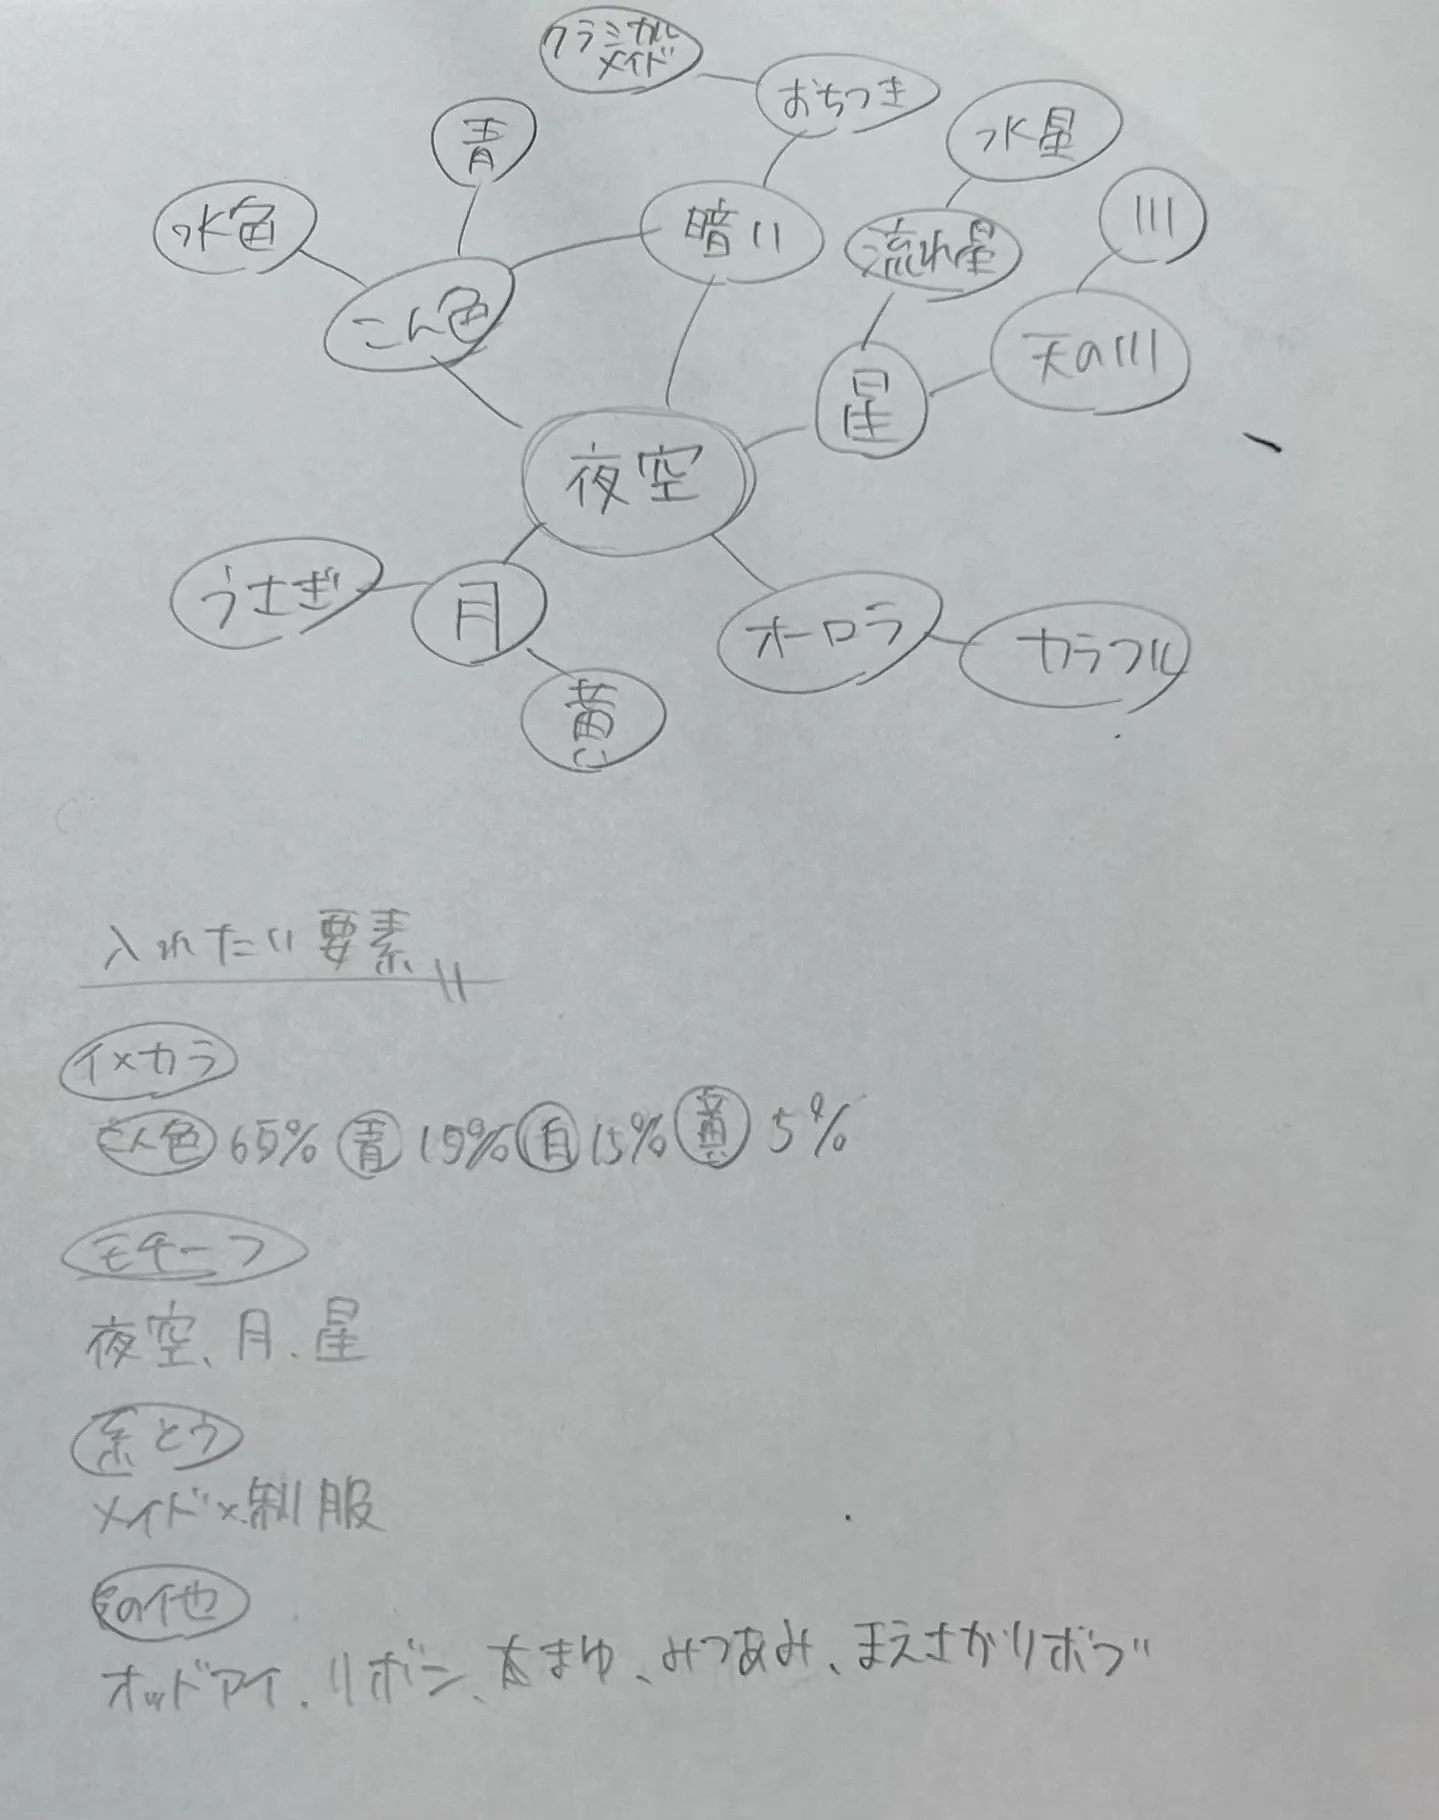 クラシカル
メイド
おちつき
青
水星
水色
暗い
流れ星
川
こん色
天の川
星
夜空
うさぎ
月
オーロラ
カラフル
黄
い
入れたい要素
イメカラ
こん色 65% 青 15% 白 15% 黄 5%
モチーフ
夜空、月、星
系とう
メイド×制服
その他
オッドアイ、リボン、太まゆ、みつあみ、まえさがりボブ